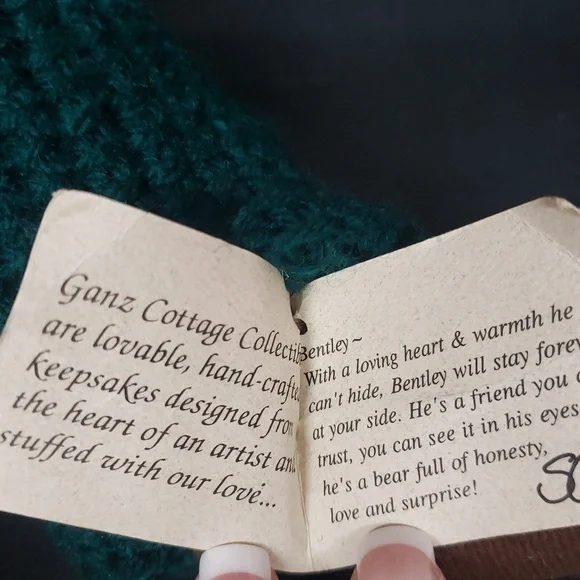 Ganz Cottage Collectib
are lovable, hand-crafte
keepsakes designed from
the heart of an artist and
stuffed with our love...
Bentley~
With a loving heart & warmth he
can't hide, Bentley will stay forev
at your side. He's a friend you c
trust, you can see it in his eyes
he's a bear full of honesty,
love and surprise!